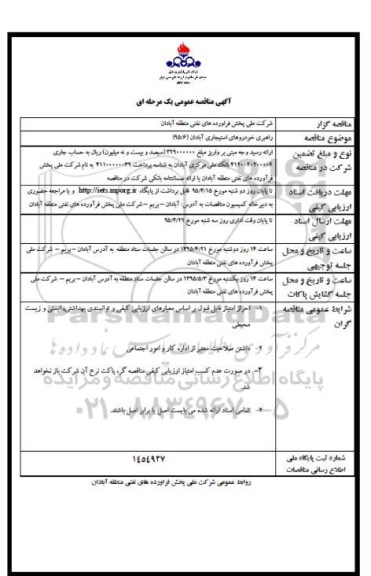 آگهی مناقصه عمومی یک مرحله ای
مناقصه گزار
شرکت ملی پخش فراورده های نفتی منطقه آبادان
موضوع مناقصه
راهبری خودروهای استیجاری آبادان (۹۵/۶)
نوع و مبلغ تضمین شرکت در مناقصه
ارائه رسید وجه مبنی بر واریز مبلغ ۳۲۹۰۰۰۰۰۰ (سیصد و بیست و نه میلیون) ریال به حساب جاری
بانک ملی مرکزی آبادان به شناسه پرداخت به نام شرکت ملی پخش
فرآورده های نفتی منطقه آبادان یا ارائه ضمانتنامه بانکی شرکت در مناقصه
مهلت دریافت اسناد ارزیابی کیفی
تا پایان روز دو شنبه مورخ ۹۵/۴/۱۵ قابل برداشت از پایگاه http://iets.mporg.ir و یا مراجعه حضوری
به دبیرخانه کمیسیون مناقصات به آدرس: آبادان – بریم – شرکت ملی پخش فرآورده های نفتی منطقه آبادان
مهلت ارسال اسناد ارزیابی کیفی
تا پایان وقت اداری روز سه شنبه مورخ ۹۵/۴/۲۹
ساعت و تاریخ و محل جلسه توجیهی
ساعت ۱۴ روز دوشنبه مورخ ۱۳۹۵/۴/۲۱ در سالن جلسات ستاد منطقه به آدرس آبادان – بریم – شرکت ملی
پخش فرآورده های نفتی منطقه آبادان
ساعت و تاریخ و محل جلسه گشایش پاکات
ساعت ۱۴ روز یکشنبه مورخ ۱۳۹۵/۵/۳ در سالن جلسات ستاد منطقه به آدرس آبادان – بریم – شرکت ملی
پخش فرآورده های نفتی منطقه آبادان
شرایط عمومی مناقصه گران
۱- احراز امتیاز قابل قبول بر اساس معیارهای ارزیابی کیفی و توانمندی بهداشتی، ایمنی و زیست
محیطی
۲- داشتن صلاحیت معتبر از اداره کار و امور اجتماعی
۳- در صورت عدم کسب امتیاز ارزیابی کیفی مناقصه گر، پاکت نرخ آن شرکت باز نخواهد
شد.
۴- تمامی اسناد ارائه شده می بایست اصل یا برابر اصل باشند.
شماره ثبت پایگاه ملی اطلاع رسانی مناقصات
۱۴۵۴۹۳۷
روابط عمومی شرکت ملی پخش فراورده های نفتی منطقه آبادان
ParsNamadData
پایگاه اطلاع رسانی مناقصه و مزایده
۰۲۱-۸۸۳۴۹۶۷۰-۵